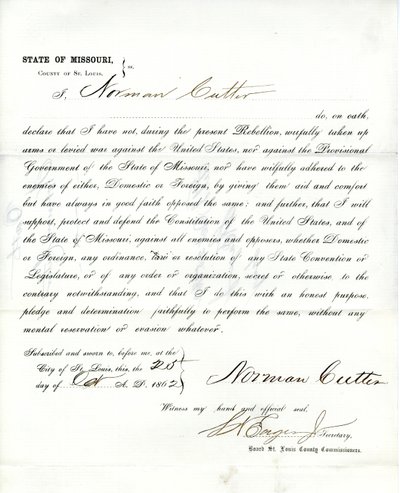 STATE OF MISSOURI,
COUNTY OF ST. LOUIS. } ss.
I, Norman Cutter
do, on oath,
declare that I have not, during the present Rebellion, wilfully taken up
arms or levied war against the United States, nor against the Provisional
Government of the State of Missouri, nor have wilfully adhered to the
enemies of either, Domestic or Foreign, by giving them aid and comfort
but have always in good faith opposed the same: and further, that I will
support, protect and defend the Constitution of the United States, and of
the State of Missouri, against all enemies and opposers, whether Domestic
or Foreign, any ordinance, law or resolution of any State Convention or
Legislature, or of any order or organization, secret or otherwise, to the
contrary notwithstanding, and that I do this with an honest purpose,
pledge and determination faithfully to perform the same, without any
mental reservation or evasion whatever.
Subscribed and sworn to, before me, at the
City of St. Louis, this, the 25
day of Oct A. D. 1862
Norman Cutter
Witness my hand and official seal.
Secretary,
Board St. Louis County Commissioners.